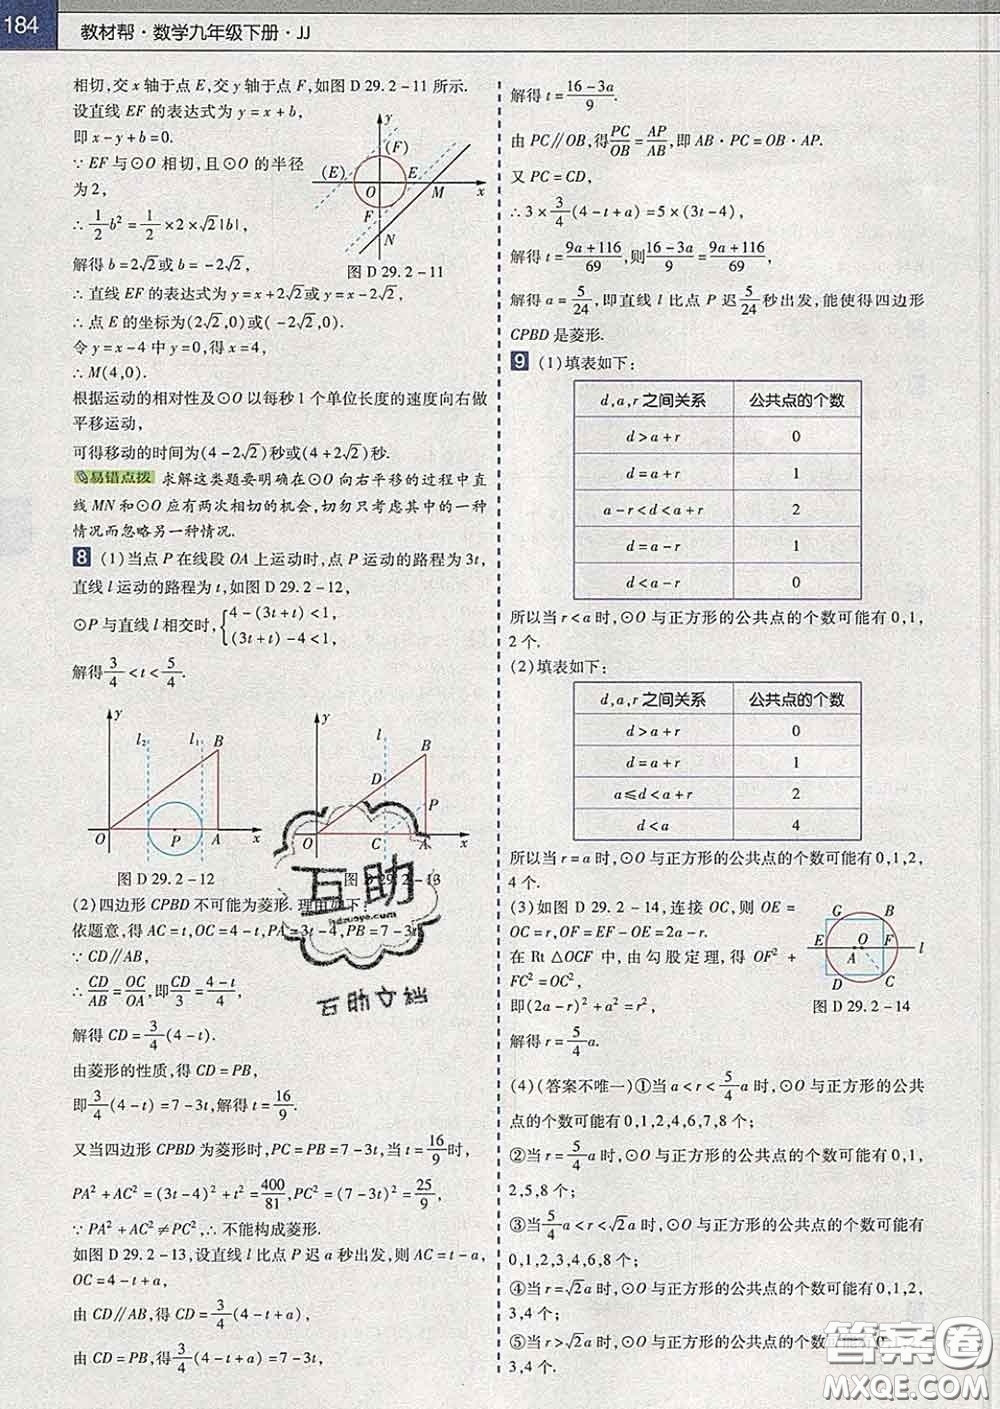 184
教材帮·数学九年级下册·JJ
相切,交 x 轴于点 E,交 y 轴于点 F,如图 D 29.2-11 所示.
设直线 EF 的表达式为 y=x+b,
即 x-y+b=0.
∵ EF 与⊙O 相切,且⊙O 的半径
为 2,
∴ 1/2 b²=1/2×2×√2|b|,
解得 b=2√2或 b=-2√2,
∴ 直线 EF 的表达式为 y=x+2√2或 y=x-2√2.
∴ 点 E 的坐标为(2√2,0)或(-2√2,0).
令 y=x-4 中 y=0,得 x=4,
∴ M(4,0).
根据运动的相对性及⊙O 以每秒 1 个单位长度的速度向右做
平移运动,
可得移动的时间为(4-2√2)秒或(4+2√2)秒.
y
(F)
(E)
E
O
M
x
F
N
图 D 29.2-11
易错点拨 求解这类题要明确在⊙O 向右平移的过程中直
线 MN 和⊙O 应有两次相切的机会,切勿只考虑其中的一种
情况而忽略另一种情况.
8 (1)当点 P 在线段 OA 上运动时,点 P 运动的路程为 3t,
直线 l 运动的路程为 t,如图 D 29.2-12,
⊙P 与直线 l 相交时,{4-(3t+t)<1,
(3t+t)-4<1,
解得 3/4<t<5/4.
y
l₂
l₁
B
O
P
A
x
图 D 29.2-12
y
l
B
D
P
O
C
A
x
图 D 29.2-13
(2)四边形 CPBD 不可能为菱形. 理由如下:
依题意,得 AC=t,OC=4-t,PA=3t-4,PB=7-3t.
∵ CD∥AB,
∴ CD/AB=OC/OA,即 CD/3=(4-t)/4,
解得 CD=3/4(4-t).
由菱形的性质,得 CD=PB,
即 3/4(4-t)=7-3t,解得 t=16/9.
又当四边形 CPBD 为菱形时,PC=PB=7-3t,当 t=16/9 时,
PA²+AC²=(3t-4)²+t²=400/81,PC²=(7-3t)²=25/9,
∵ PA²+AC²≠PC²,∴ 不能构成菱形.
如图 D 29.2-13,设直线 l 比点 P 迟 a 秒出发,则 AC=t-a,
OC=4-t+a,
由 CD∥AB,得 CD=3/4(4-t+a),
由 CD=PB,得 3/4(4-t+a)=7-3t,
解得 t=(16-3a)/9.
由 PC∥OB,得 PC/OB=AP/AB,即 AB·PC=OB·AP.
又 PC=CD,
∴ 3×3/4(4-t+a)=5×(3t-4),
解得 t=(9a+116)/69,则(16-3a)/9=(9a+116)/69,
解得 a=5/24,即直线 l 比点 P 迟 5/24 秒出发,能使得四边形
CPBD 是菱形.
9 (1)填表如下:
d,a,r 之间关系 公共点的个数
d>a+r 0
d=a+r 1
a-r<d<a+r 2
d=a-r 1
d<a-r 0
所以当 r<a 时,⊙O 与正方形的公共点的个数可能有 0,1,
2 个.
(2)填表如下:
d,a,r 之间关系 公共点的个数
d>a+r 0
d=a+r 1
a≤d<a+r 2
d<a 4
所以当 r=a 时,⊙O 与正方形的公共点的个数可能有 0,1,2,
4 个.
(3)如图 D 29.2-14,连接 OC,则 OE=
OC=r,OF=EF-OE=2a-r.
在 Rt△OCF 中,由勾股定理,得 OF²+
FC²=OC²,
即(2a-r)²+a²=r²,
解得 r=5/4 a.
G
B
E
O
F
l
A
D
C
图 D 29.2-14
(4)(答案不唯一)①当 a<r<5/4 a 时,⊙O 与正方形的公共
点的个数可能有 0,1,2,4,6,7,8 个;
②当 r=5/4 a 时,⊙O 与正方形的公共点的个数可能有 0,1,
2,5,8 个;
③当 5/4 a<r<√2a 时,⊙O 与正方形的公共点的个数可能有
0,1,2,3,4,6,8 个;
④当 r=√2a 时,⊙O 与正方形的公共点的个数可能有 0,1,2,
3,4 个;
⑤当 r>√2a 时,⊙O 与正方形的公共点的个数可能有 0,1,2,
3,4 个.
互助
hdzuoye.com
互助文档
答案圈
MXQE.COM